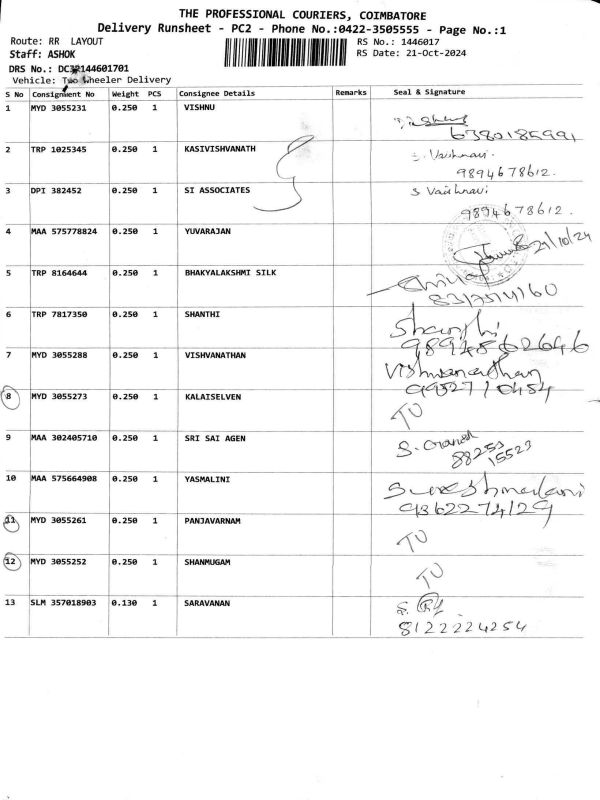 THE PROFESSIONAL COURIERS, COIMBATORE
Delivery Runsheet - PC2 - Phone No.:0422-3505555 - Page No.:1
Route: RR LAYOUT RS No.: 1446017
Staff: ASHOK RS Date: 21-Oct-2024
DRS No.:
Vehicle: Two Wheeler Delivery
S No Consignment No Weight PCS Consignee Details Remarks Seal & Signature
1 MYD 3055231 0.250 1 VISHNU
6380185991
2 TRP 1025345 0.250 1 KASIVISHVANATH S. Vaishnavi.
9894678612.
3 DPI 382452 0.250 1 SI ASSOCIATES S Vaishnavi
9894678612.
4 MAA 575778824 0.250 1 YUVARAJAN
21/10/24
5 TRP 8164644 0.250 1 BHAKYALAKSHMI SILK
6 TRP 7817350 0.250 1 SHANTHI Shanthi
7 MYD 3055288 0.250 1 VISHVANATHAN Vishvanathan
8 MYD 3055273 0.250 1 KALAISELVEN TU
9 MAA 302405710 0.250 1 SRI SAI AGEN
88253
15523
10 MAA 575664908 0.250 1 YASMALINI
9362274129
11 MYD 3055261 0.250 1 PANJAVARNAM TU
12 MYD 3055252 0.250 1 SHANMUGAM TU
13 SLM 357018903 0.130 1 SARAVANAN
8122224254